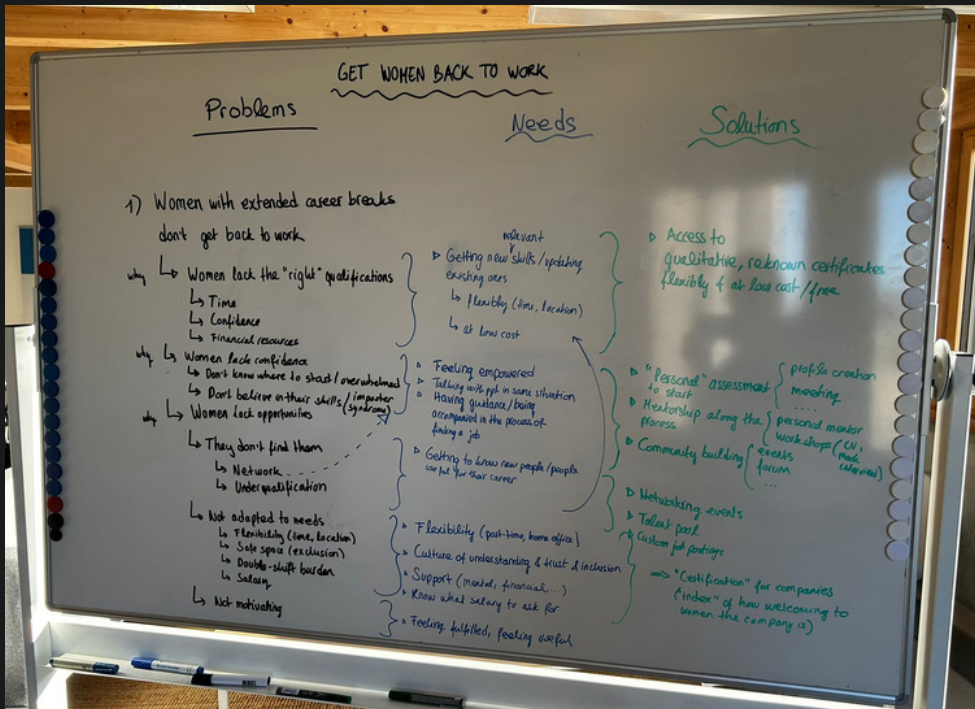 GET WOMEN BACK TO WORK
Problems
1) Women with extended career breaks
don't get back to work
why ↳ Women lack the "right" qualifications
↳ Time
↳ Confidence
↳ Financial resources
why ↳ Women lack confidence
↳ Don't know where to start/overwhelmed
↳ Don't believe in their skills (imposter
syndrome)
why ↳ Women lack opportunities
↳ They don't find them
↳ Network
↳ Underqualification
↳ Not adapted to needs
↳ Flexibility (time, location)
↳ Safe space (exclusion)
↳ Double-shift burden
↳ Salary
↳ Not motivating
Needs
relevant
▷ Getting new skills/updating
existing ones
↳ flexibly (time, location)
↳ at low cost
▷ Feeling empowered
▷ Talking with ppl in same situation
▷ Having guidance/being
accompanied in the process of
finding a job
▷ Getting to know new people/people
useful for their career
▷ Flexibility (part-time, home office)
▷ Culture of understanding & trust & inclusion
▷ Support (mental, financial...)
▷ Know what salary to ask for
▷ Feeling fulfilled, feeling useful
Solutions
▷ Access to
qualitative, reknown certificates
flexibly & at low cost/free
▷ "Personal" assessment
to start
profile creation
meeting
....
▷ Mentorship along the
process
personal mentor
workshops (CV,
mock
interview)
▷ Community building
events
forum
...
▷ Networking events
▷ Talent pool
▷ Custom job postings
⇒ "Certification" for companies
("index" of how welcoming to
women the company is)